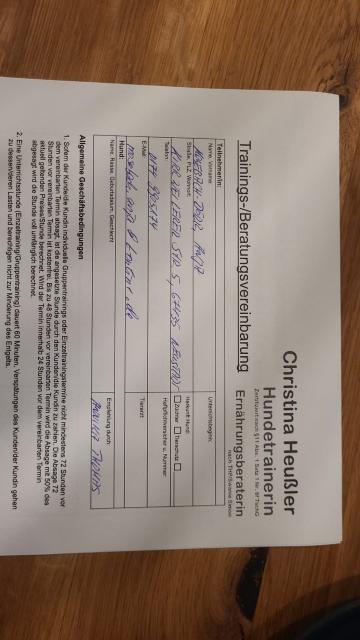 Christina Heußler
Hundetrainerin
Zertifiziert nach §11 Abs. 1 Satz 1 Nr. 8f TschG
Trainings-/Beratungsvereinbarung
Ernährungsberaterin
TeilnehmerIn:
Name, Vorname
Unterrichtsbeginn:
Straße, PLZ, Wohnort:
Herkunft Hund:
Züchter Tierschutz
STR 5, 67435 NEUSTADT
Telefon:
Haftpflichtversicherer u. Nummer:
E-Mail:
Tierarzt:
Hund:
Name, Rasse, Geburtsdatum, Geschlecht
Empfehlung durch:
Allgemeine Geschäftsbedingungen
1. Sofern der Kunde/die Kundin individuelle Gruppentrainings oder Einzeltrainingstermine nicht mindestens 72 Stunden vor
dem vereinbarten Termin absagt, ist die angesetzte Stunde durch den Kunden/die Kundin zu zahlen. Die Absage 72
Stunden vor vereinbarten Termin ist kostenfrei. Bis zu 48 Stunden vor vereinbarten Termin wird die Absage mit 50% des
aktuell geltenden Preises/Stunde berechnet. Wird der Termin innerhalb 24 Stunden vor dem vereinbarten Termin
abgesagt wird die Stunde voll umfänglich berechnet.
2. Eine Unterrichtsstunde (Einzeltraining/Gruppentraining) dauert 60 Minuten. Verspätungen des Kunden/der Kundin gehen
zu dessen/deren Lasten und berechtigen nicht zur Minderung des Entgelts.